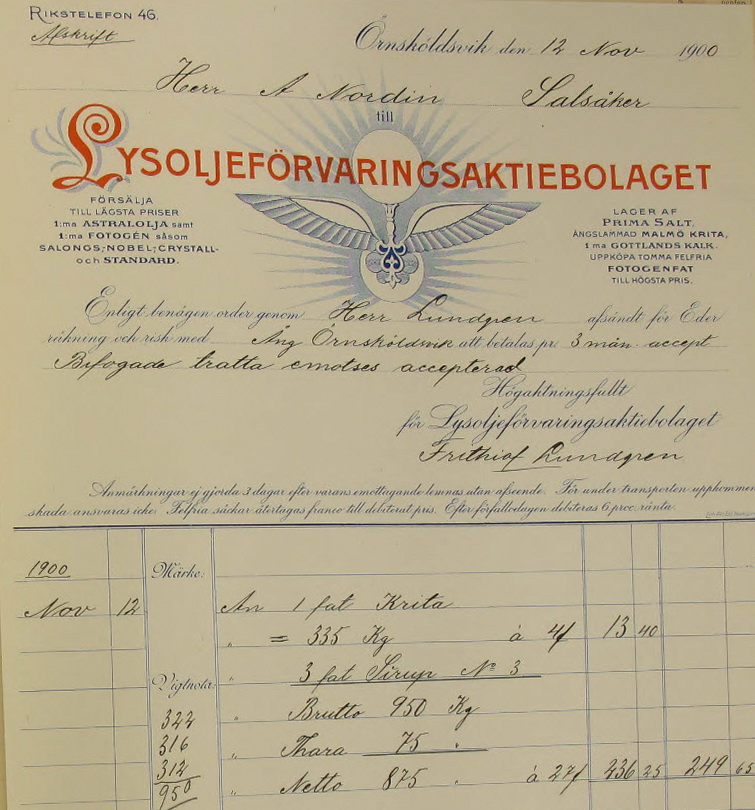 RIKSTELEFON 46.
Afskrift
Örnsköldsvik den 12 Nov 1900
Herr A Nordin Salsåker
till
LYSOLJEFÖRVARINGSAKTIEBOLAGET
FÖRSÄLJA
TILL LÄGSTA PRISER
1:ma ASTRALOLJA samt
1:ma FOTOGÉN såsom
SALONGS,-NOBEL,-CRYSTALL-
och STANDARD.
LAGER AF
PRIMA SALT,
ÅNGSLAMMAD MALMÖ KRITA,
1 ma GOTTLANDS KALK.
UPPKÖPA TOMMA FELFRIA
FOTOGENFAT
TILL HÖGSTA PRIS.
Enligt benägen order genom Herr Lundgren afsändt för Eder
räkning och risk med Ång Örnsköldsvik att betalas pr. 3 mån. accept
Bifogade tratta emotses accepterad
Högaktningsfullt
för Lysoljeförvaringsaktiebolaget
Frithiof Lundgren
Anmärkningar ej gjorda 3 dagar efter varans emottagande lemnas utan afseende. För under transporten uppkommen
skada ansvaras icke. Felfria säckar återtagas franco till debiterat pris. Efter förfallodagen debiteras 6 proc. ränta.
1900 Märke:
Nov 12 An 1 fat Krita
" = 335 Kg à 4f 13 40
" 3 fat Sirup No 3
Vigtnota:
322 " Brutto 950 Kg
316 " Thara 75 "
312 " Netto 875 " à 27f 236 25 249 65
950